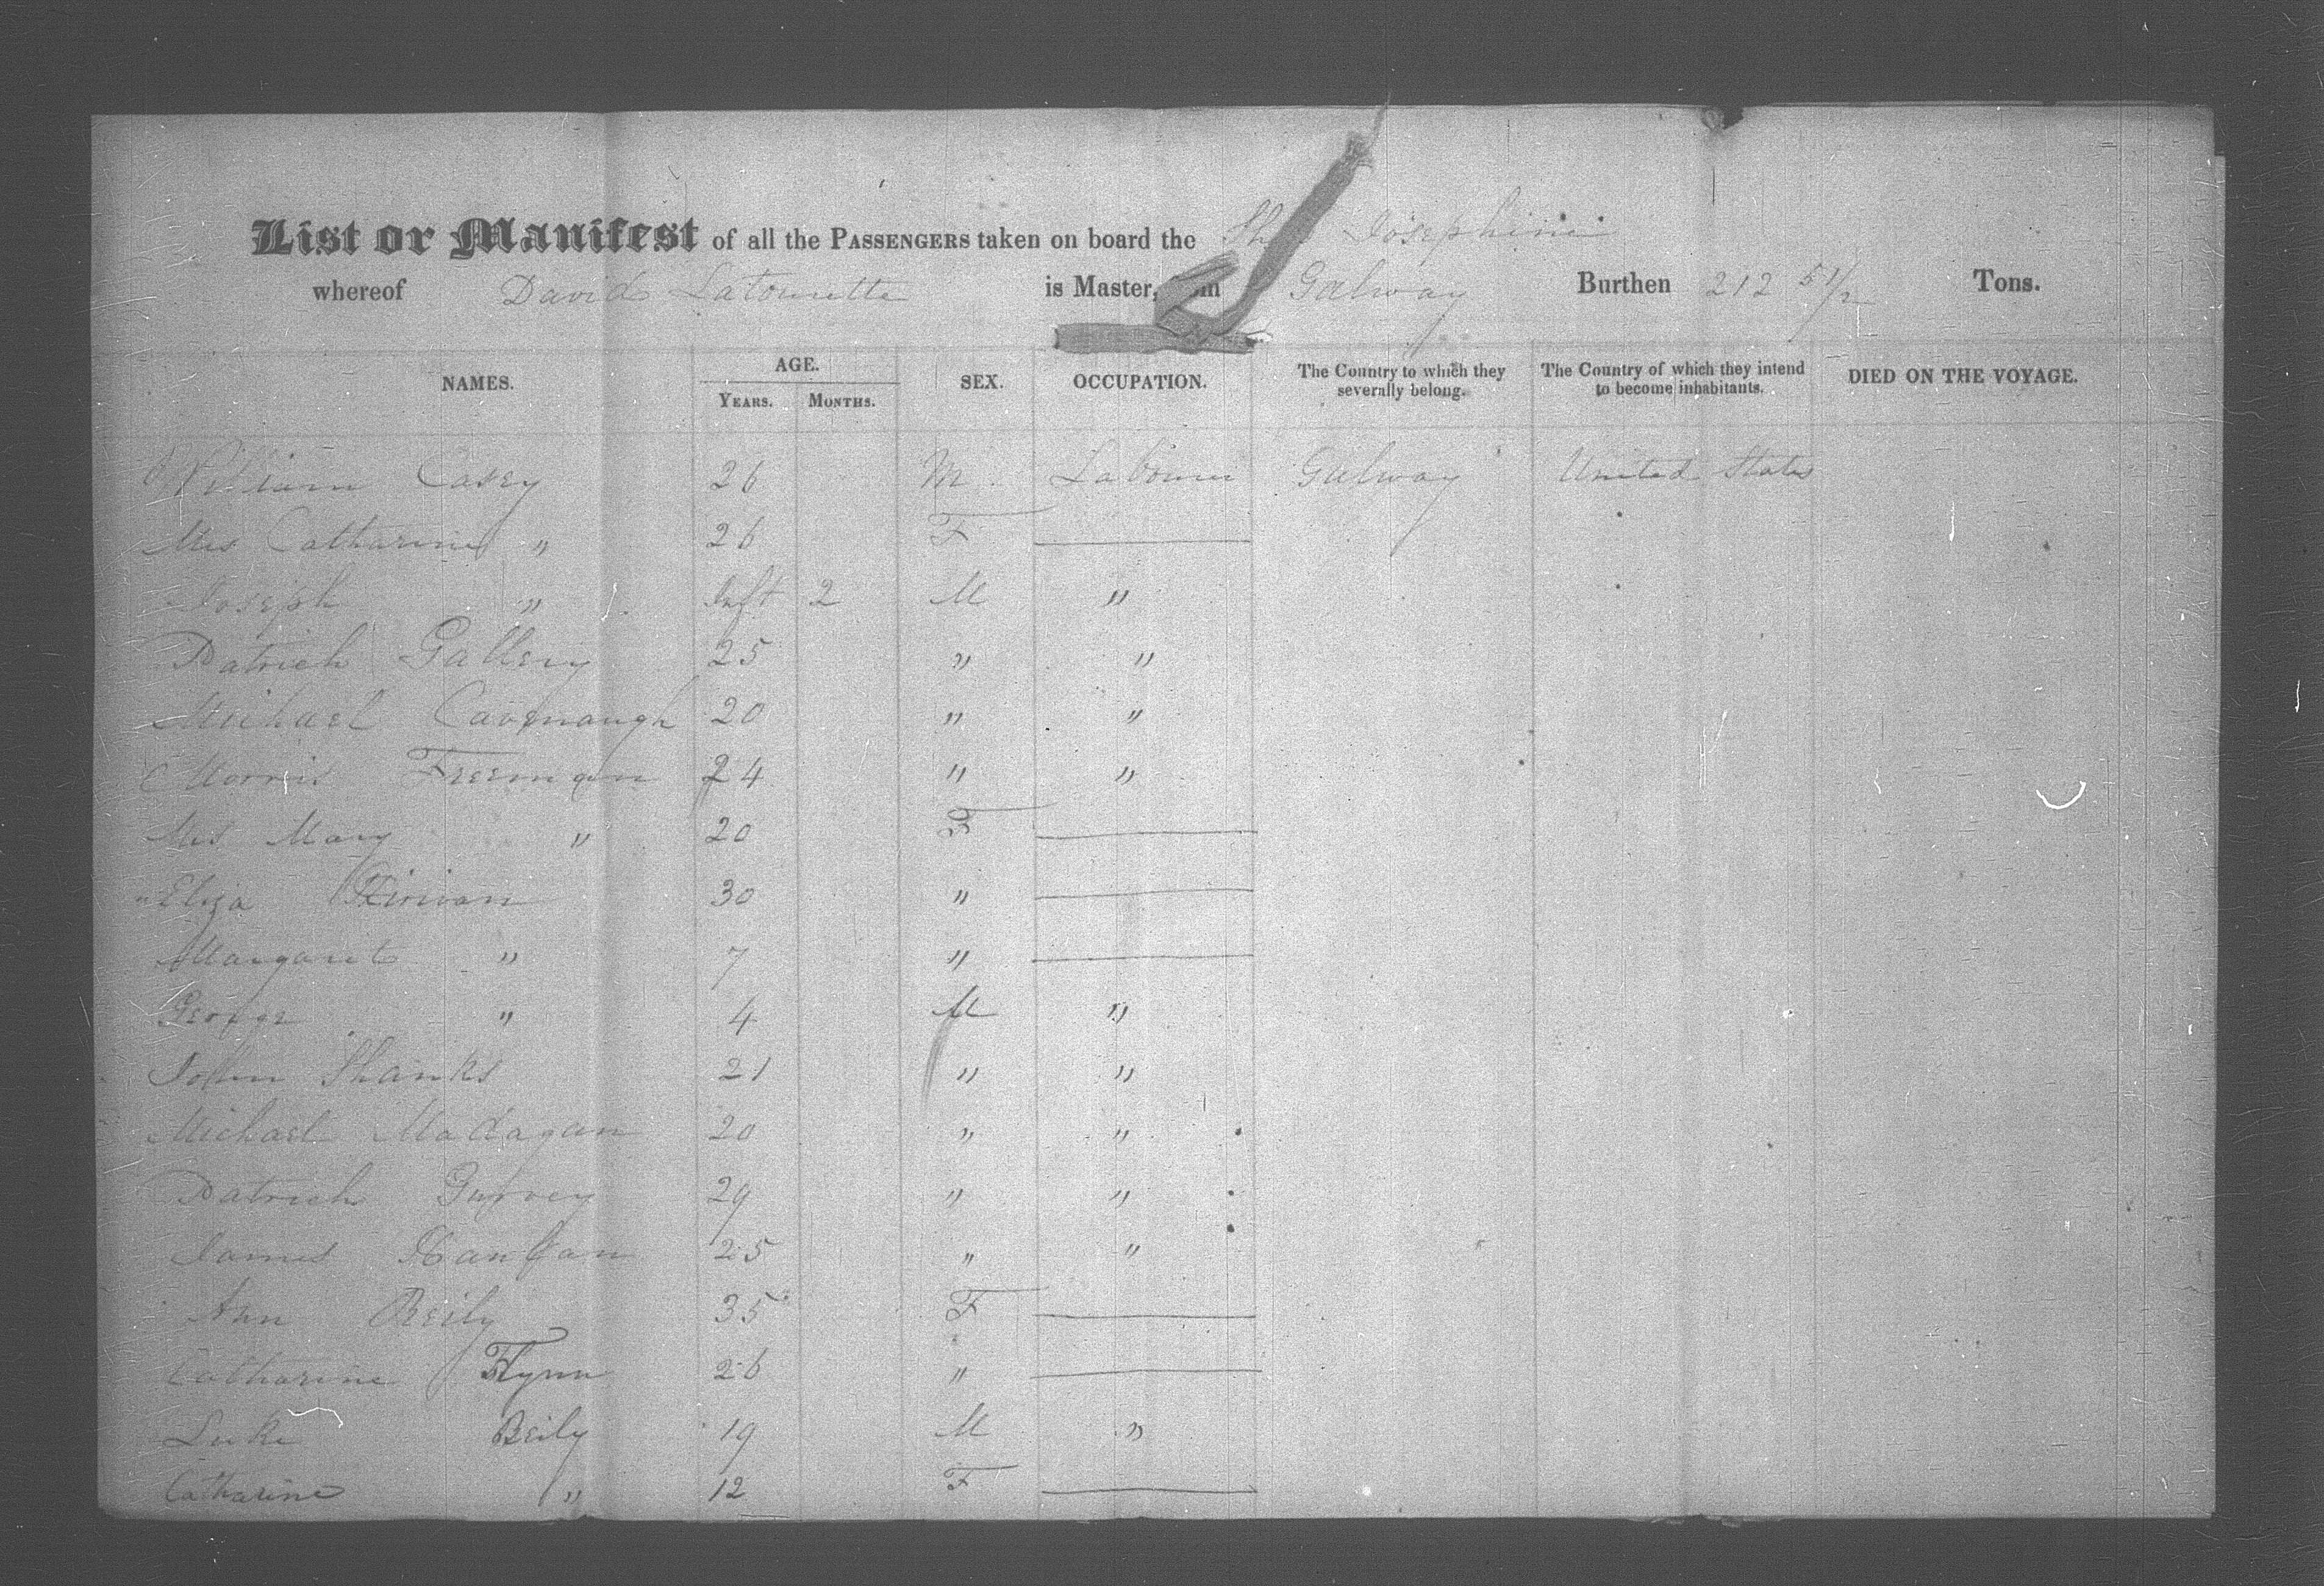 List or Manifest of all the PASSENGERS taken on board the Josephine
whereof David Latourette is Master, Galway Burthen 212 51/2 Tons.
NAMES. AGE. YEARS. MONTHS. SEX. OCCUPATION. The Country to which they severally belong. The Country of which they intend to become inhabitants. DIED ON THE VOYAGE.
William Casey 26 M Labourer Galway United States
Mrs Catharine " 26 F
Joseph " Inft 2 M "
Patrick Gallery 25 " "
Michael Cavenaugh 20 " "
Morris Freeman 24 " "
Mrs Mary " 20 F
" Eliza Kirwan 30 "
Margaret " 7 "
George " 4 M "
John Shanks 21 " "
Michael Madagan 20 " "
Patrick Garvey 29 " "
James 25 " "
Ann Reily 35 F
Catharine Flynn 26 "
Luke Reily 19 M "
Catharine " 12 F